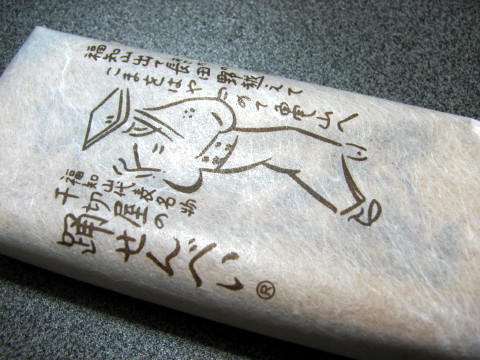 福知山出て長田野越えて
こまをはやめて亀山へ
福知山代表名物
千切屋の
踊せんべい®